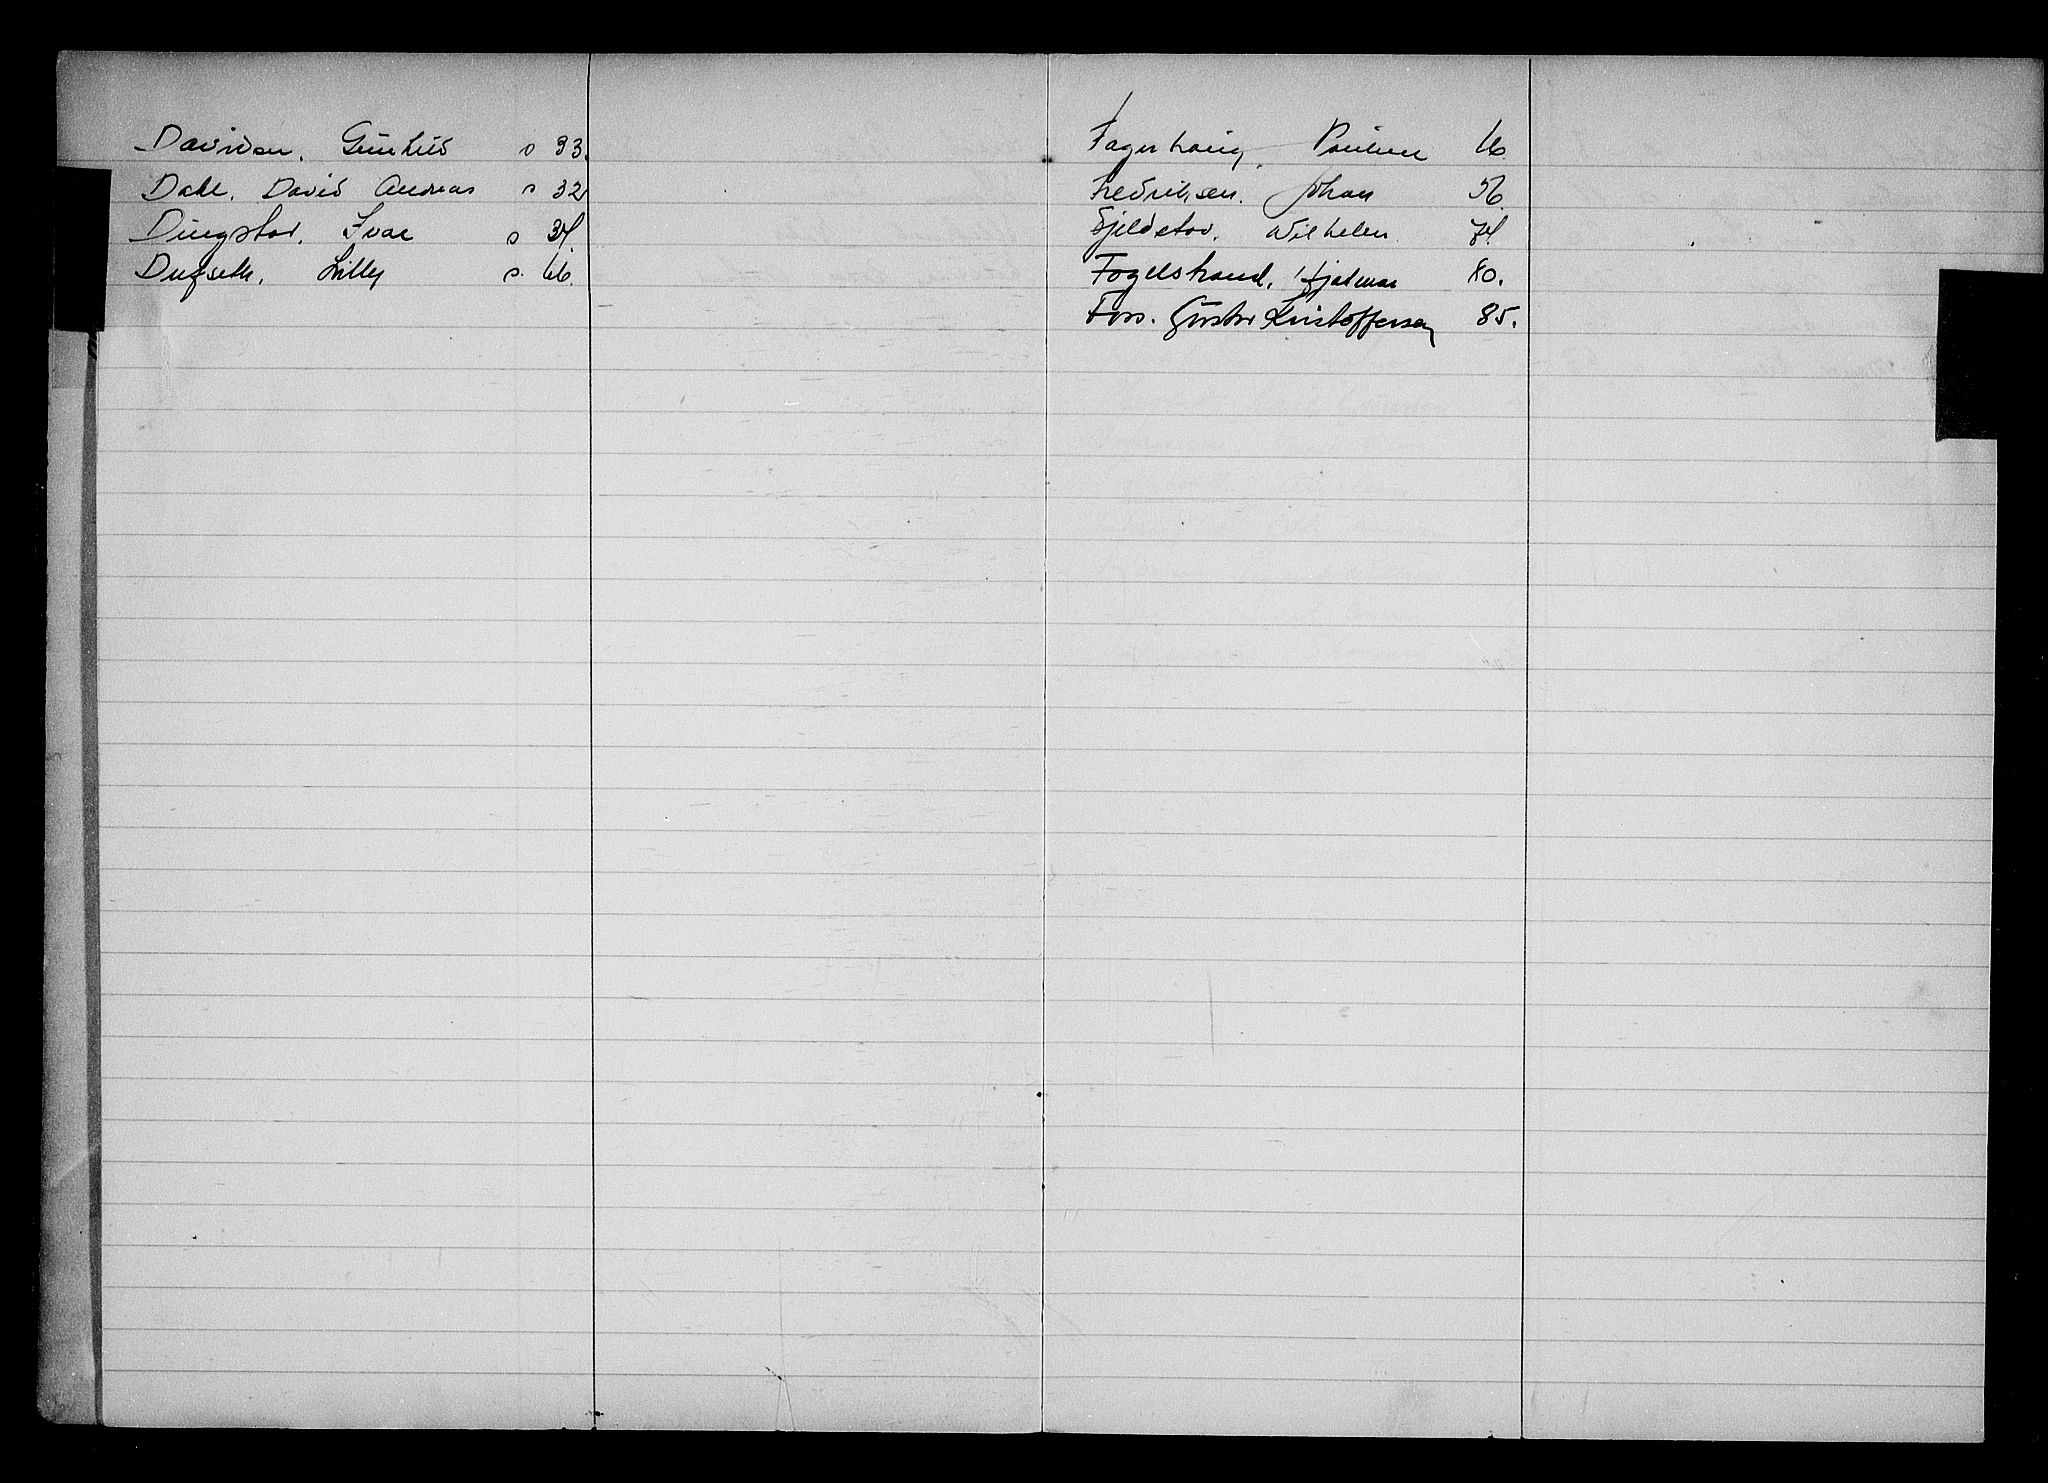 Davidsen, Gunhild s 33.
Dahl, David Andreas s 32
Dingstad, Ivar s 34.
Dufseth, Lilly s. 66.
Fagerhaug, Pauline 16.
Fredriksen. Johan 56.
Fjeldstad, Wilhelm. 74.
Fogelstrand, Hjalmar 80.
Foss. Gustav Kristoffersen 85.